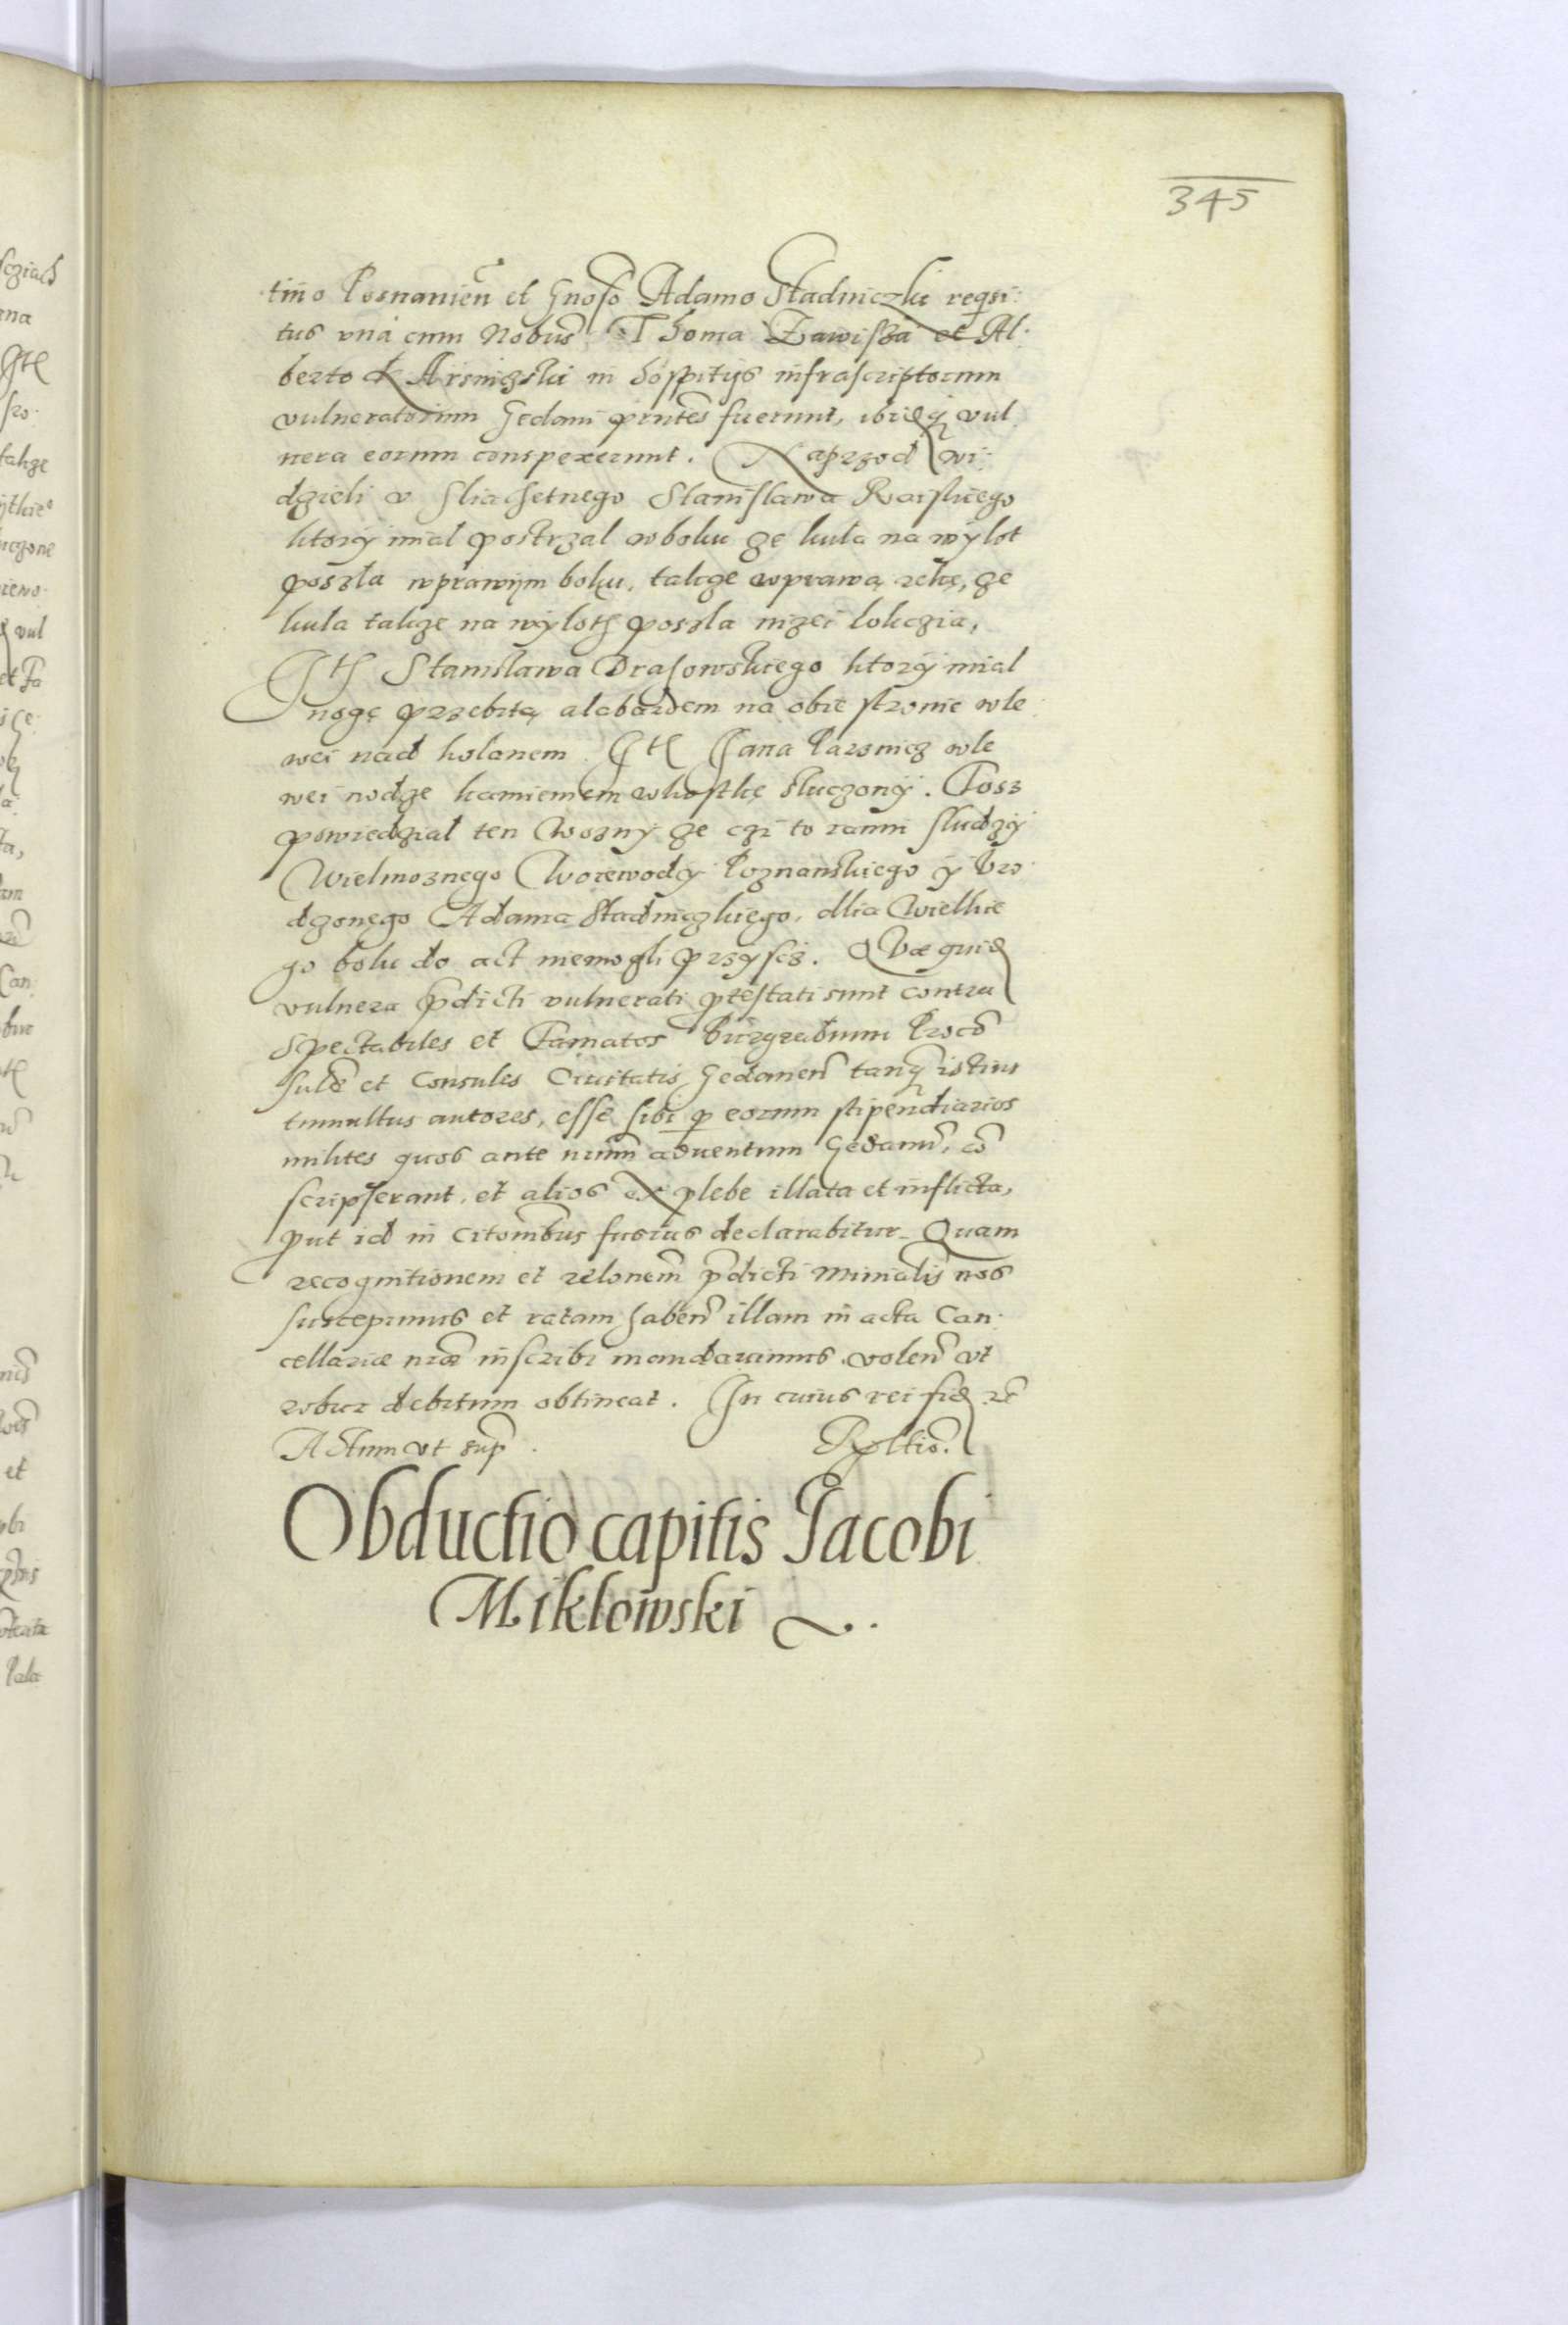 345
tino Posnanien et Gnoso Adamo Stadniczki reqsi:
tus vná cum Nobus Thoma Zawisza et Al:
berto Karsnizski in hospitijs infrascriptorum
vulneratorum Gedani pntes fuerunt, ibidq vul
nera eorum conspexerunt. Naprzod wi:
dzieli v sliachetnego Stanislawa Raiskiego
ktorÿ mial postrzal w boku ze kula na wÿlot
poszla w prawÿm boku, takze w prawą rekę, ze
kula takze na wÿloth poszla nizei lokczia,
Ith Stanislawa Drasowskiego ktorÿ mial
nogę przebitą alabardem na obie stronie w le
wei nad kolanem. Ith Jana Parznicz w le
wei nodze kamieniem w kostkę stuczonÿ. Tosz
powiedzial ten Woznÿ ze czi to ranni sludzÿ
Wielmoznego Woiewodÿ Poznanskiego ÿ Vro
dzonego Adama Stadniczkiego, dlia Wielkie
go bolu do act niemogli przÿscz. Quæ quid
vulnera pdicti vulnerati ptestati sunt contra
Spectabiles et Famatos Burgrabium Proco
sule et Consules Ciuitatis Gedanen tanq istius
tumultus autores, esse sibi p eorum stipendiarios
milites quos ante nrum aduentum Gedanu, co
scripserant, et alios ex plebe illata et inflicta,
put id in citonibus fusius declarabitur. Quam
recognitionem et relonem pdicti Minialis nos
suscepimus et ratam haben illam in acta Can:
cellariæ nræ inscribi mandauimus. volen vt
robur debitum obtineat. In cuius rei fid rc
Actum vt sup. Rxltio.
Obductio capitis Jacobi
Miklowski